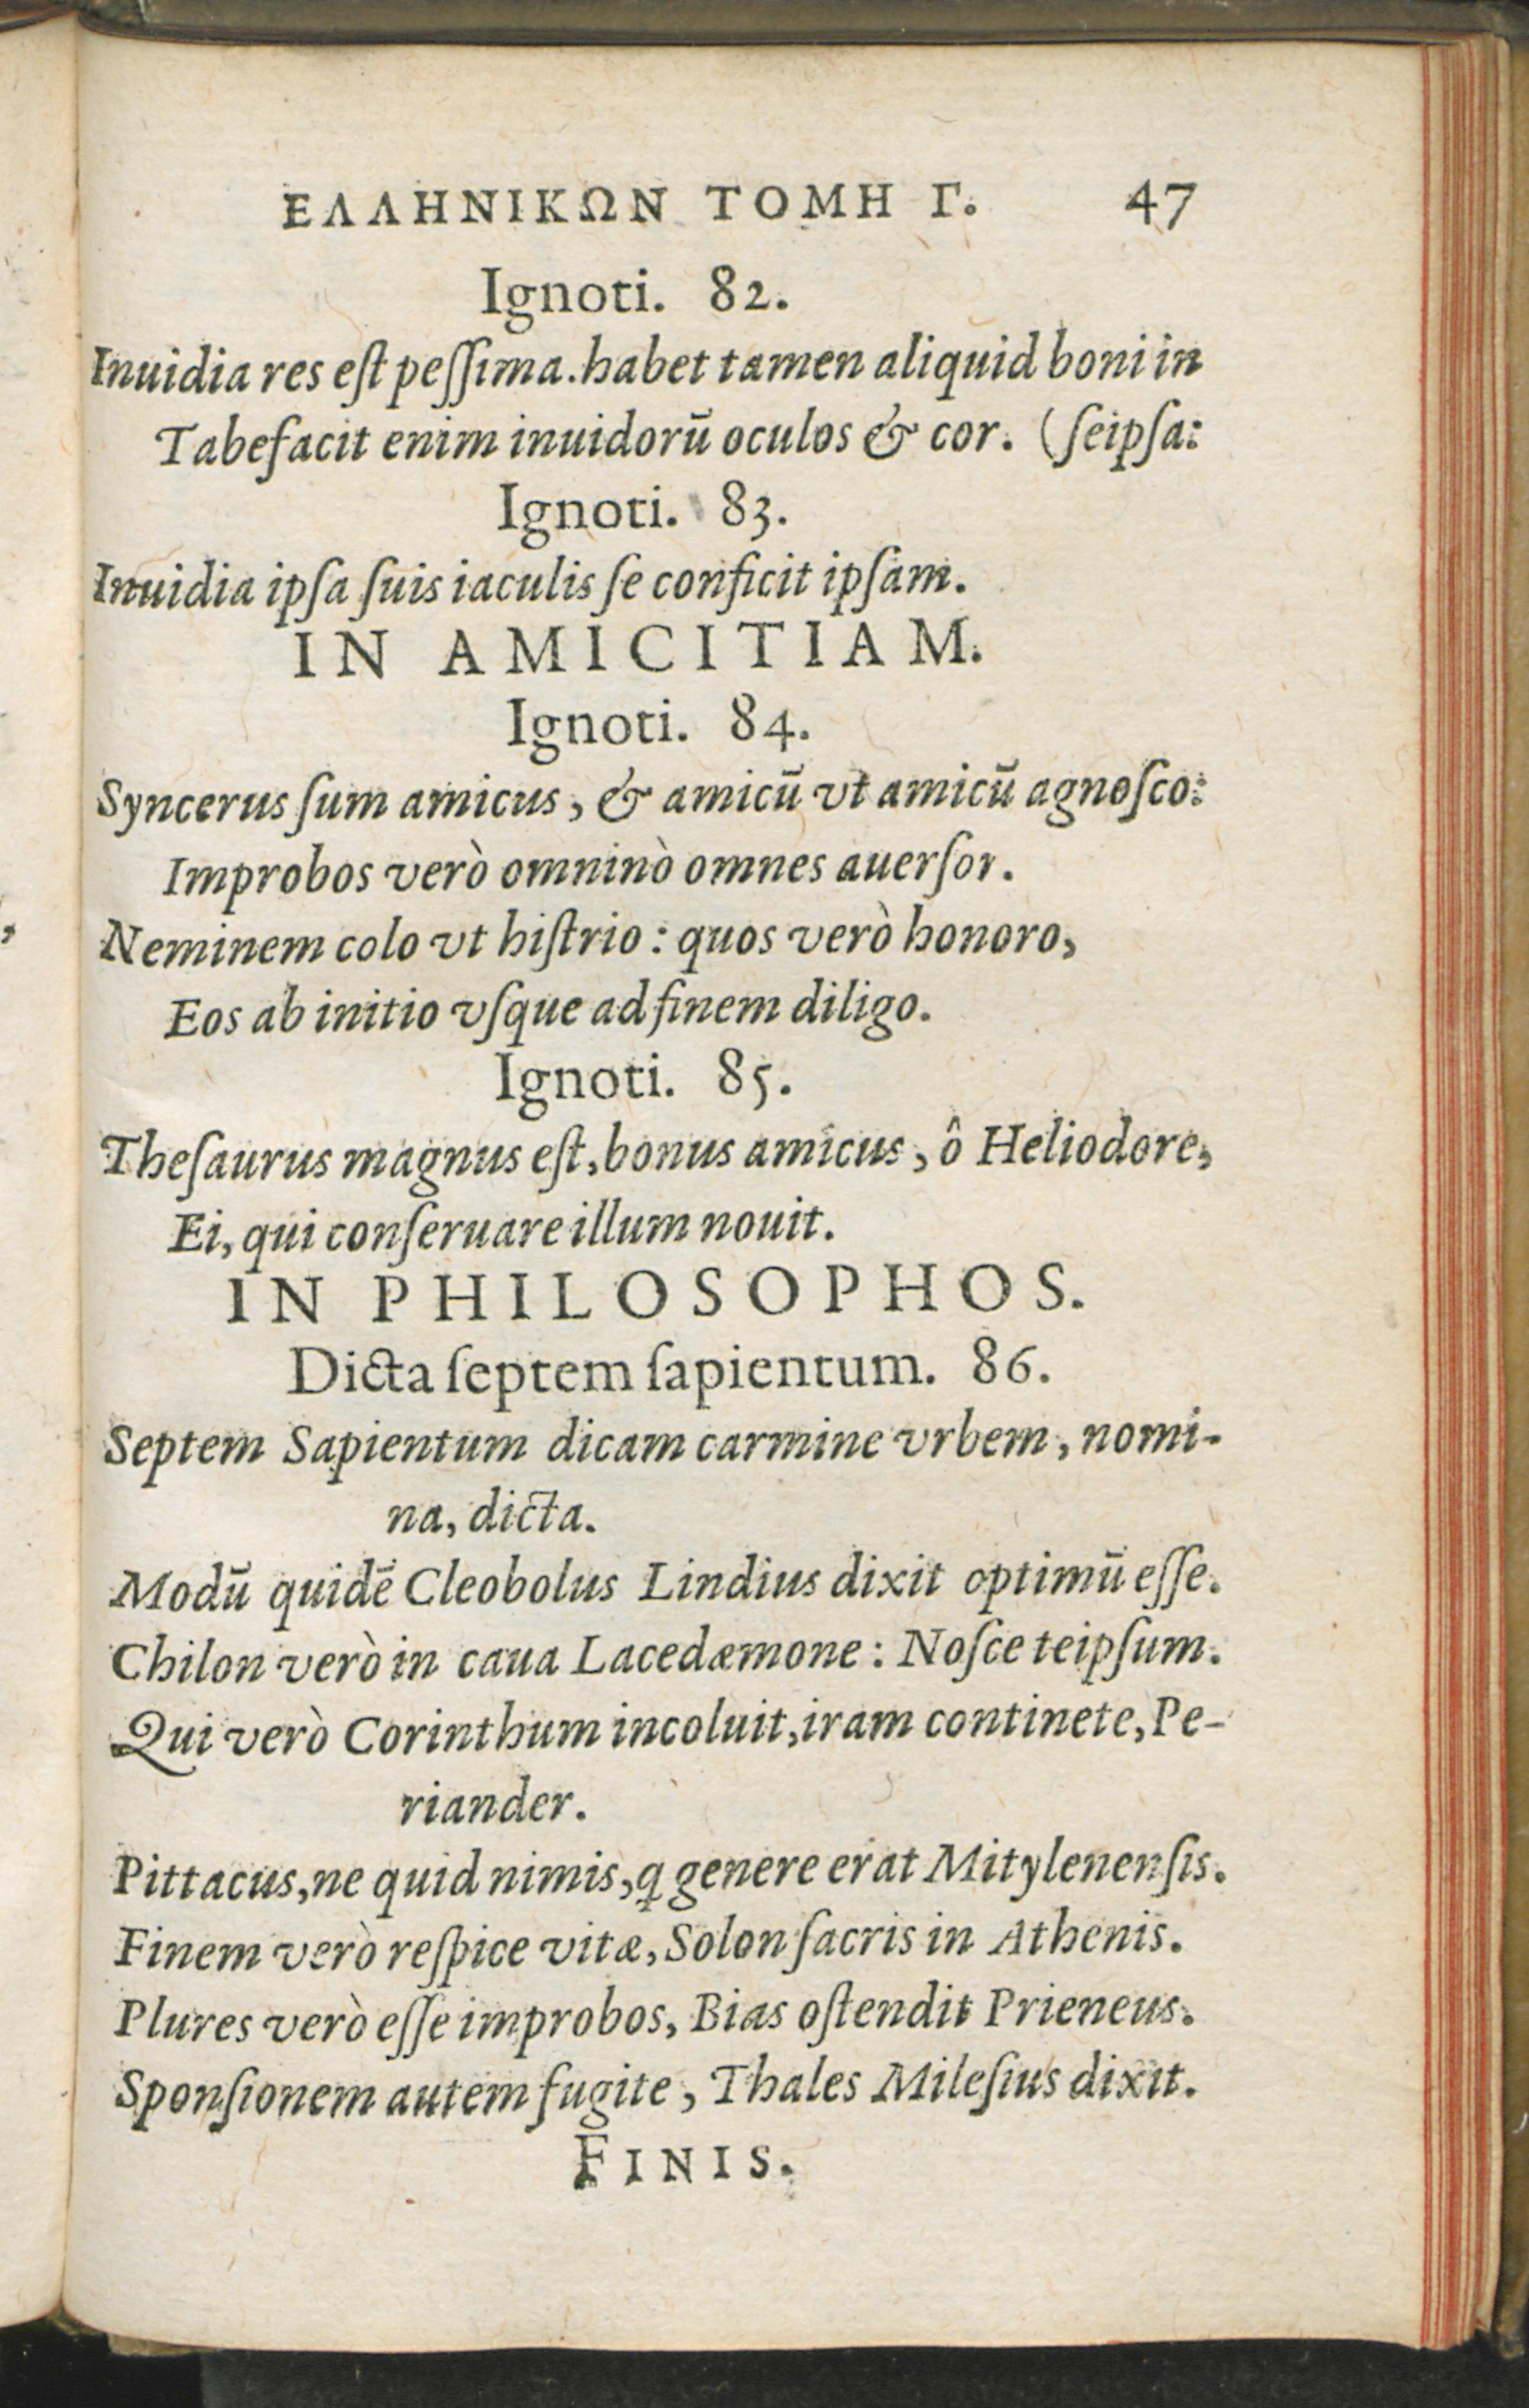 ΕΛΛΗΝΙΚΩΝ ΤΟΜΗ Γ. 47
Ignoti. 82.
Inuidia res eſt peſſima. habet tamen aliquid boni in
Tabefacit enim inuidorū oculos & cor. (ſeipſa:
Ignoti. 83.
Inuidia ipſa ſuis iaculis ſe conficit ipſam.
IN AMICITIAM.
Ignoti. 84.
Syncerus ſum amicus, & amicū vt amicū agnoſco:
Improbos verò omninò omnes auerſor.
Neminem colo vt hiſtrio: quos verò honoro,
Eos ab initio vſque ad finem diligo.
Ignoti. 85.
Theſaurus magnus eſt, bonus amicus, ô Heliodore,
Ei, qui conſeruare illum nouit.
IN PHILOSOPHOS.
Dicta ſeptem ſapientum. 86.
Septem Sapientum dicam carmine vrbem, nomi-
na, dicta.
Modū quidē Cleobolus Lindius dixit optimū eſſe.
Chilon verò in caua Lacedæmone: Noſce teipſum.
Qui verò Corinthum incoluit, iram continete, Pe-
riander.
Pittacus, ne quid nimis, q genere erat Mitylenenſis.
Finem verò reſpice vitæ, Solon ſacris in Athenis.
Plures verò eſſe improbos, Bias oſtendit Prieneus.
Sponſionem autem fugite, Thales Mileſius dixit.
FINIS.